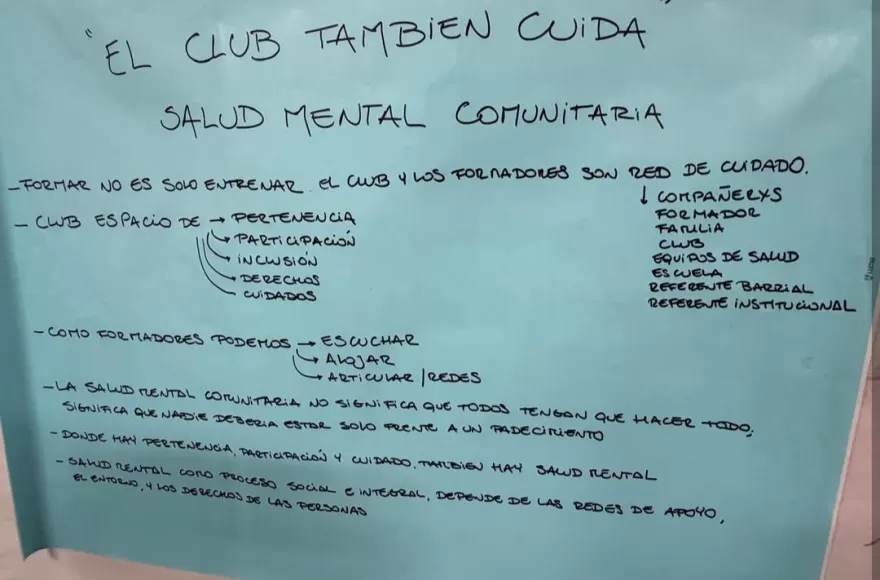 "EL CLUB TAMBIEN CUIDA"
SALUD MENTAL COMUNITARIA
- FORMAR NO ES SOLO ENTRENAR. EL CLUB Y LOS FORMADORES SON RED DE CUIDADO.
↓ COMPAÑERXS
FORMADOR
FAMILIA
CLUB
EQUIPOS DE SALUD
ESCUELA
REFERENTE BARRIAL
REFERENTE INSTITUCIONAL
- CLUB ESPACIO DE → PERTENENCIA
→ PARTICIPACIÓN
→ INCLUSIÓN
→ DERECHOS
CUIDADOS
- COMO FORMADORES PODEMOS → ESCUCHAR
→ ALOJAR
→ ARTICULAR / REDES
- LA SALUD MENTAL COMUNITARIA NO SIGNIFICA QUE TODOS TENGAN QUE HACER TODO,
SIGNIFICA QUE NADIE DEBERIA ESTAR SOLO FRENTE A UN PADECIMIENTO
- DONDE HAY PERTENENCIA, PARTICIPACIÓN Y CUIDADO, TAMBIEN HAY SALUD MENTAL
- SALUD MENTAL COMO PROCESO SOCIAL E INTEGRAL, DEPENDE DE LAS REDES DE APOYO,
EL ENTORNO, Y LOS DERECHOS DE LAS PERSONAS